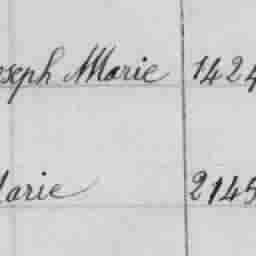 oseph Marie 1424
Marie 2145